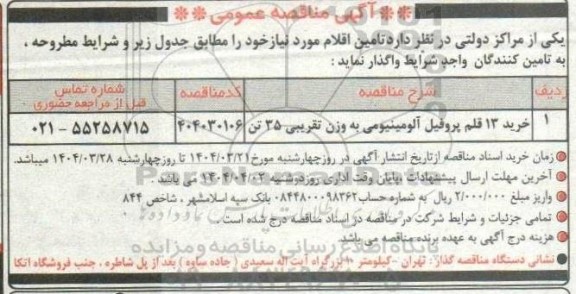 ** آگهی مناقصه عمومی **
یکی از مراکز دولتی در نظر دارد تامین اقلام مورد نیاز خود را مطابق جدول زیر و شرایط مطروحه ،
به تامین کنندگان واجد شرایط واگذار نماید :
ردیف شرح مناقصه کد مناقصه شماره تماس قبل از مراجعه حضوری
۱ خرید ۱۳ قلم پروفیل آلومینیومی به وزن تقریبی ۳۵ تن ۴۰۴۰۳۰۱۰۶ ۵۵۲۵۸۷۱۵ - ۰۲۱
زمان خرید اسناد مناقصه از تاریخ انتشار آگهی در روز چهارشنبه مورخ ۱۴۰۴/۰۳/۲۱ تا روز چهارشنبه ۱۴۰۴/۰۳/۲۸ میباشد.
آخرین مهلت ارسال پیشنهادات پایان وقت اداری روز دوشنبه ۱۴۰۴/۰۴/۰۲ می باشد .
واریز مبلغ ۲/۰۰۰/۰۰۰ ریال به شماره حساب ۰۸۴۴۸۰۰۰۹۸۳۶۲ بانک سپه اسلامشهر ، شاخص ۸۴۴
تمامی جزئیات و شرایط شرکت در مناقصه در اسناد مناقصه درج شده است .
هزینه درج آگهی به عهده برنده مناقصه می باشد
نشانی دستگاه مناقصه گذار: تهران -کیلومتر ۲۰ بزرگراه آیت اله سعیدی ( جاده ساوه ) بعد از پل شاطره ، جنب فروشگاه اتکا